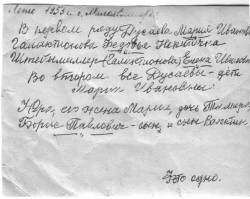 Лето 1953 г. г.
В первом ряду Дусаева Мария Ивановна
Галактионова Федосья Никитична
Штейнмиллер (Галактионова) Елена Ивановна
Во втором все Дусаевы - дети
Марии Ивановны:
Юра, его жена Мария, дочь Тамара,
Борис Павлович - сын, и сын Валентин